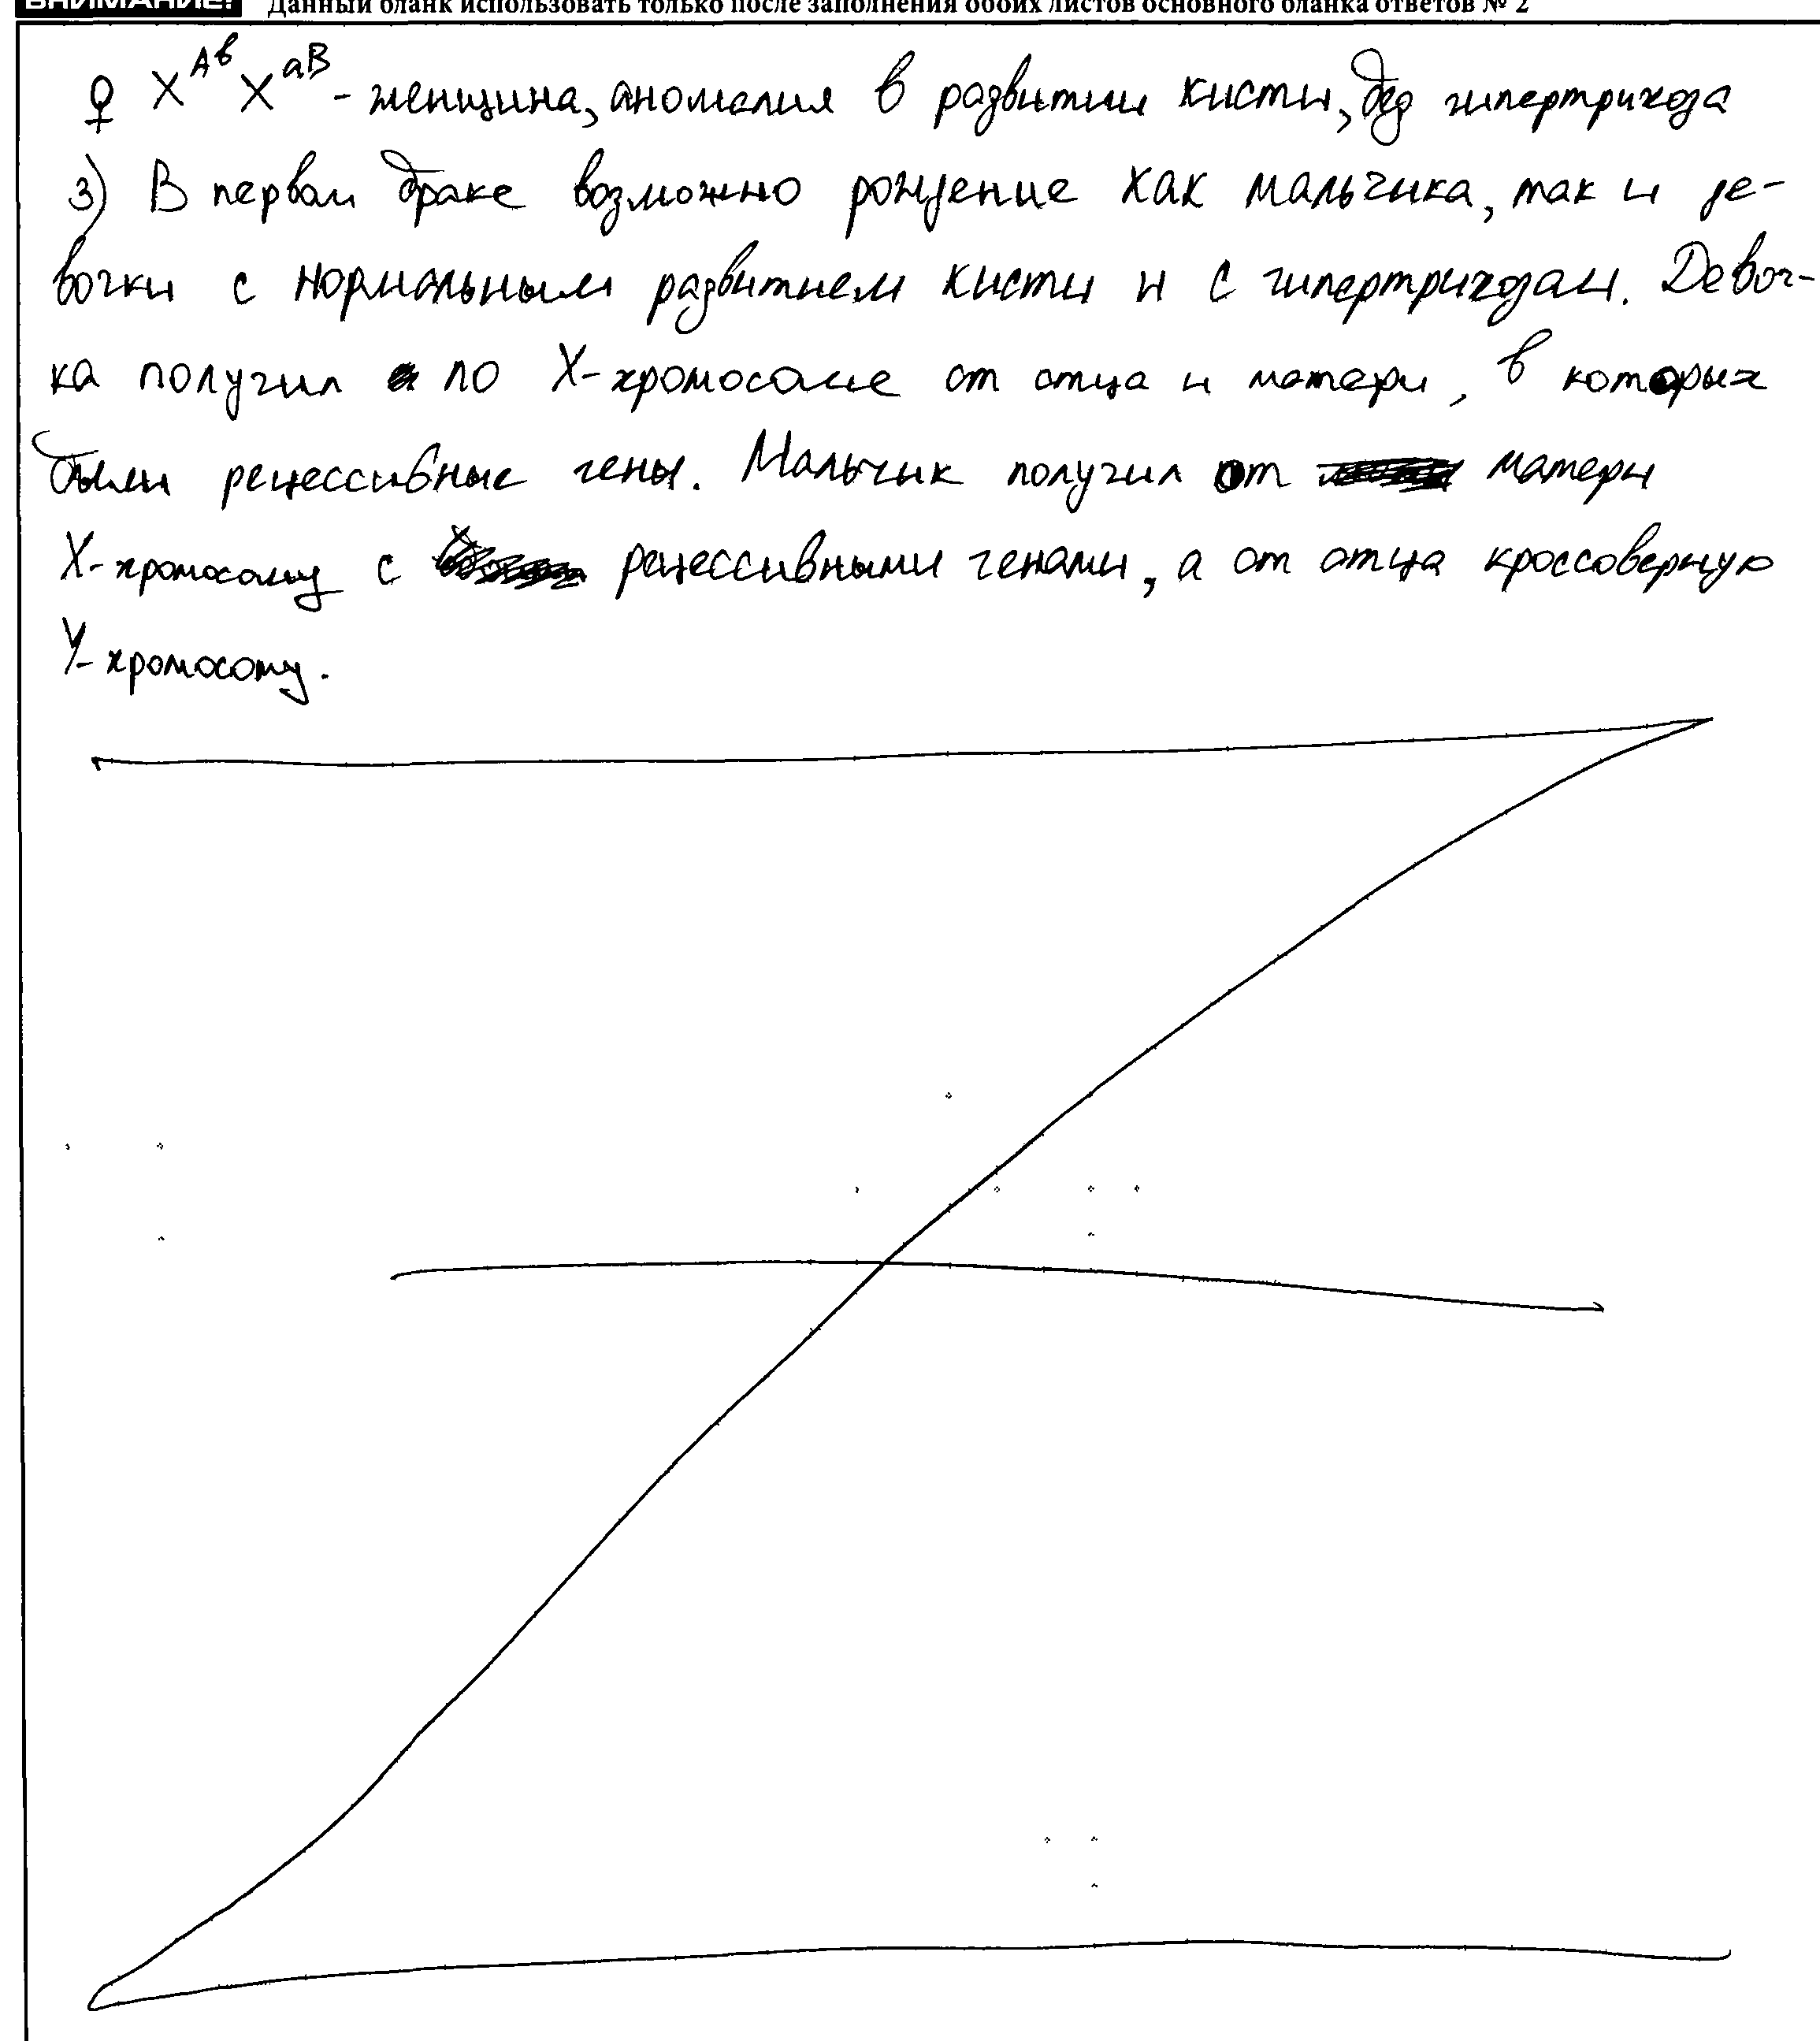 ВНИМАНИЕ! Данный бланк использовать только после заполнения обоих листов основного бланка ответов № 2
♀ X^Ав X^аВ - женщина, аномалия в развитии кисти, без гипертрихоза
3) В первом браке возможно рождение как мальчика, так и де-
вочки с нормальным развитием кисти и с гипертрихозом. Девоч-
ка получил по X-хромосоме от отца и матери, в которых
были рецессивные гены. Мальчик получил от матери
X-хромосому с рецессивными генами, а от отца кроссоверную
Y-хромосому.